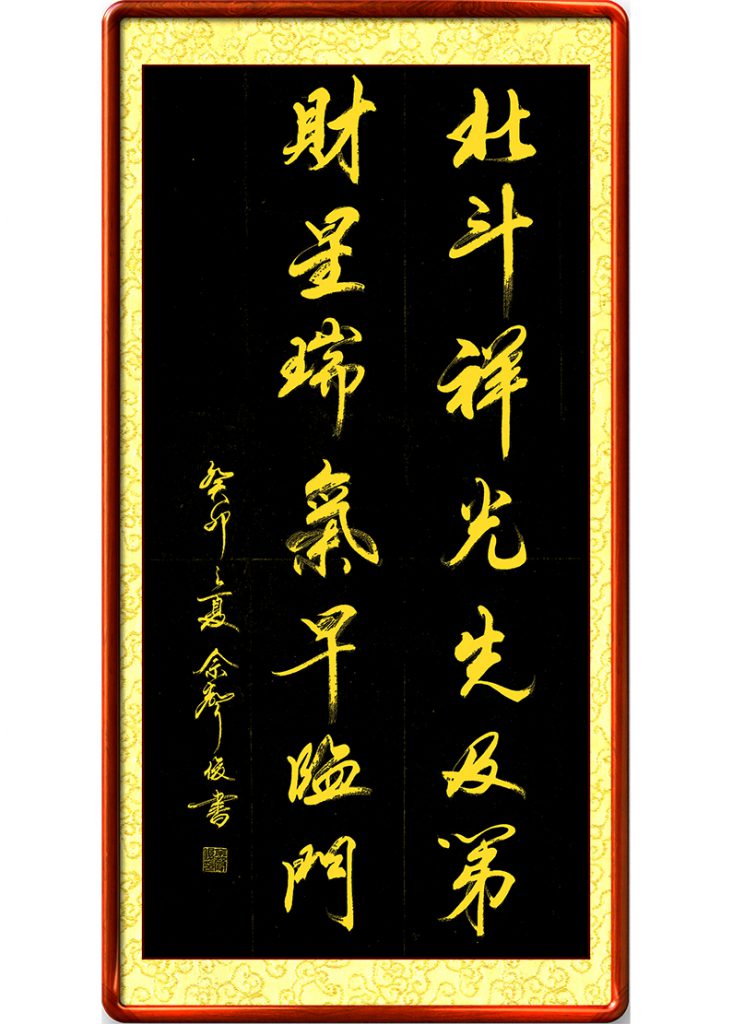 北斗祥光先及第
財星瑞氣早臨門
癸卯之夏余俊書